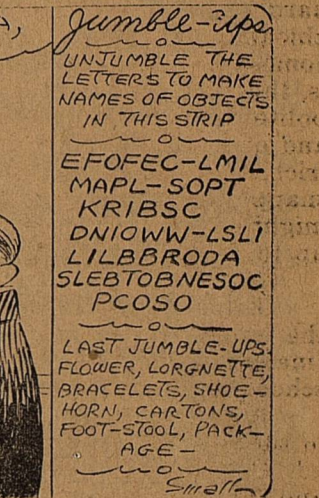 A,
Jumble-Ups
UNJUMBLE THE
LETTERS TO MAKE
NAMES OF OBJECTS
IN THIS STRIP
EFOFEC-LMIL
MAPL-SOPT
KRIBSC
DNIOWW-LSLI
LILBBRODA
SLEBTOBNESOC
PCOSO
LAST JUMBLE-UPS.
FLOWER, LORGNETTE,
BRACELETS, SHOE-
HORN, CARTONS,
FOOT-STOOL, PACK-
AGE-
Small